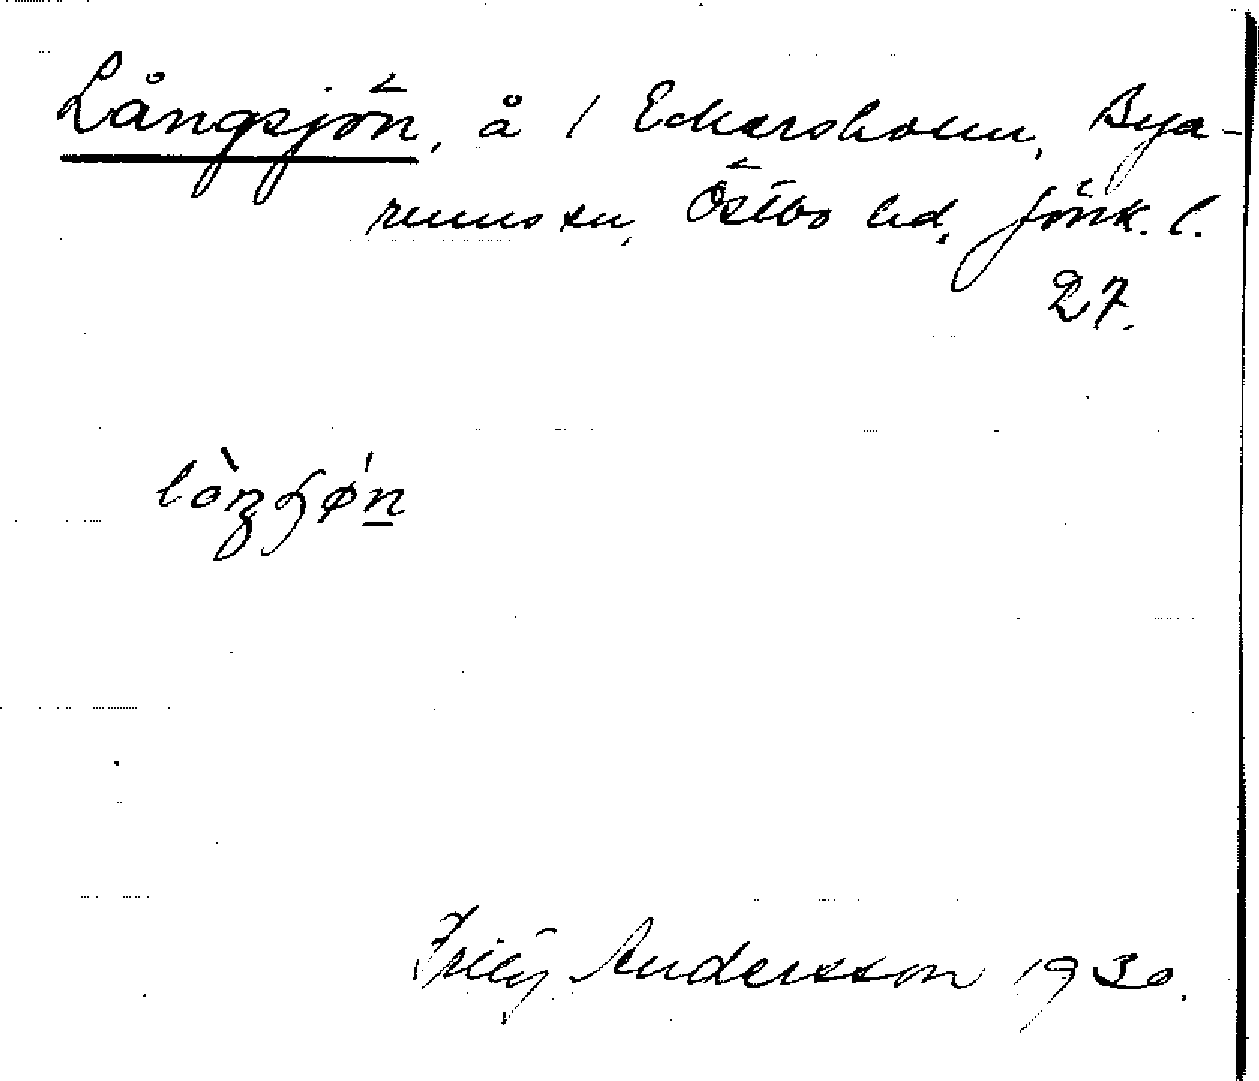 Långsjön, å 1 Eckersholm, Bya-
rums sn, Östbo hd, Jönk. l.
27.
lòŋʃø'n
Fritz Andersson 1930.